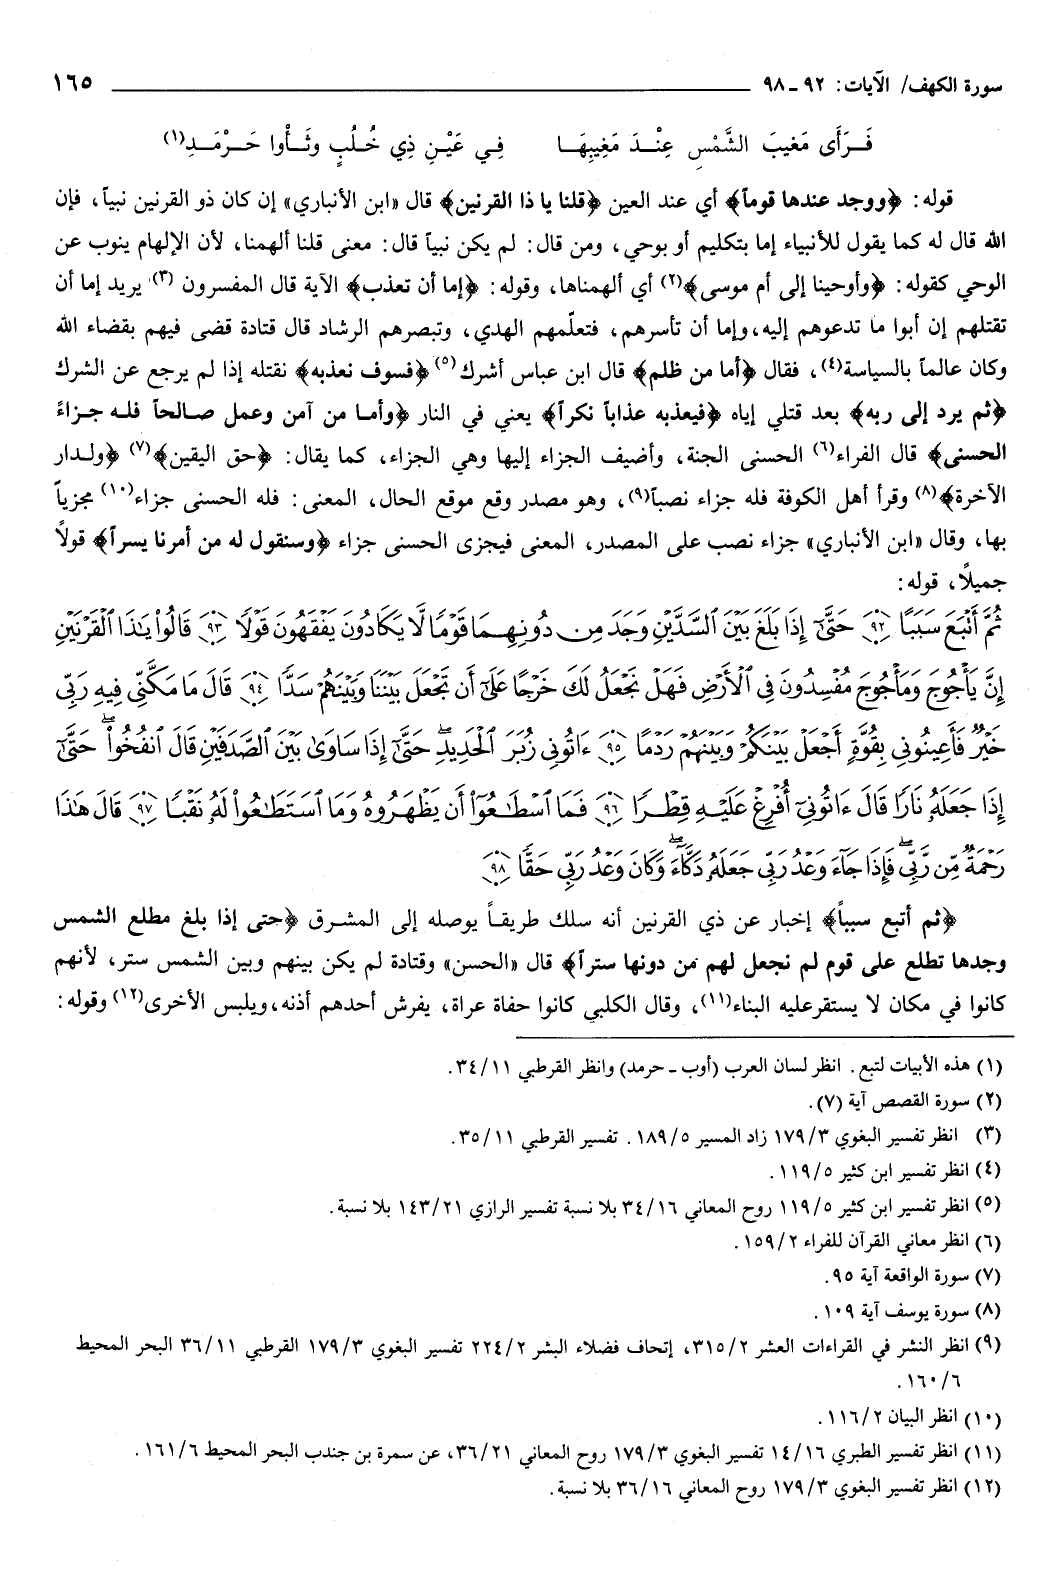 سورة الكهف/ الآيات: ٩٢ ـ ٩٨ ١٦٥
فَـرَأَى مَغيبَ الشَّمْسِ عِنْـدَ مَغِيبِهَـا فِـي عَيْـنِ ذِي خُـلُبٍ وثَـأْوا حَـرْمَـدِ(١)
قوله: ﴿ووجد عندها قوماً﴾ أي عند العين ﴿قلنا يا ذا القرنين﴾ قال «ابن الأنباري» إن كان ذو القرنين نبياً، فإن
الله قال له كما يقول للأنبياء إما بتكليم أو بوحي، ومن قال: لم يكن نبياً قال: معنى قلنا ألهمنا، لأن الإلهام ينوب عن
الوحي كقوله: ﴿وأوحينا إلى أم موسى﴾(٢) أي ألهمناها، وقوله: ﴿إما أن تعذب﴾ الآية قال المفسرون (٣) يريد إما أن
تقتلهم إن أبوا ما تدعوهم إليه،وإما أن تأسرهم، فتعلّمهم الهدي، وتبصرهم الرشاد قال قتادة قضى فيهم بقضاء الله
وكان عالماً بالسياسة(٤)، فقال ﴿أما من ظلم﴾ قال ابن عباس أشرك(٥) ﴿فسوف نعذبه﴾ نقتله إذا لم يرجع عن الشرك
﴿ثم يرد إلى ربه﴾ بعد قتلي إياه ﴿فيعذبه عذاباً نكراً﴾ يعني في النار ﴿وأمـا من آمن وعمل صـالحاً فلـه جـزاءً
الحسنى﴾ قال الفراء(٦) الحسنى الجنة، وأضيف الجزاء إليها وهي الجزاء، كما يقال: ﴿حق اليقين﴾(٧) ﴿ولـدار
الآخرة﴾(٨) وقرأ أهل الكوفة فله جزاء نصباً(٩)، وهو مصدر وقع موقع الحال، المعنى: فله الحسنى جزاء(١٠) مجزياً
بها، وقال «ابن الأنباري» جزاء نصب على المصدر، المعنى فيجزى الحسنى جزاء ﴿وسنقول له من أمرنا يسراً﴾ قولاً
جميلاً، قوله:
ثُمَّ أَتْبَعَ سَبَبًا ﴿٩٢﴾ حَتَّىٰٓ إِذَا بَلَغَ بَيْنَ ٱلسَّدَّيْنِ وَجَدَ مِن دُونِهِمَا قَوْمًا لَّا يَكَادُونَ يَفْقَهُونَ قَوْلًا ﴿٩٣﴾ قَالُوا۟ يَٰذَا ٱلْقَرْنَيْنِ
إِنَّ يَأْجُوجَ وَمَأْجُوجَ مُفْسِدُونَ فِى ٱلْأَرْضِ فَهَلْ نَجْعَلُ لَكَ خَرْجًا عَلَىٰٓ أَن تَجْعَلَ بَيْنَنَا وَبَيْنَهُمْ سَدًّا ﴿٩٤﴾ قَالَ مَا مَكَّنِّى فِيهِ رَبِّى
خَيْرٌ فَأَعِينُونِى بِقُوَّةٍ أَجْعَلْ بَيْنَكُمْ وَبَيْنَهُمْ رَدْمًا ﴿٩٥﴾ ءَاتُونِى زُبَرَ ٱلْحَدِيدِ ۖ حَتَّىٰٓ إِذَا سَاوَىٰ بَيْنَ ٱلصَّدَفَيْنِ قَالَ ٱنفُخُوا۟ ۖ حَتَّىٰٓ
إِذَا جَعَلَهُۥ نَارًا قَالَ ءَاتُونِىٓ أُفْرِغْ عَلَيْهِ قِطْرًا ﴿٩٦﴾ فَمَا ٱسْطَٰعُوٓا۟ أَن يَظْهَرُوهُ وَمَا ٱسْتَطَٰعُوا۟ لَهُۥ نَقْبًا ﴿٩٧﴾ قَالَ هَٰذَا
رَحْمَةٌ مِّن رَّبِّى ۖ فَإِذَا جَآءَ وَعْدُ رَبِّى جَعَلَهُۥ دَكَّآءَ ۖ وَكَانَ وَعْدُ رَبِّى حَقًّا ﴿٩٨﴾
﴿ثم أتبع سبباً﴾ إخبار عن ذي القرنين أنه سلك طريقـاً يوصله إلى المشـرق ﴿حتى إذا بلغ مطلع الشمس
وجدها تطلع على قوم لم نجعل لهم من دونها ستراً﴾ قال «الحسن» وقتادة لم يكن بينهم وبين الشمس ستر، لأنهم
كانوا في مكان لا يستقرعليه البناء(١١)، وقال الكلبي كانوا حفاة عراة، يفرش أحدهم أذنه،ويلبس الأخرى(١٢) وقوله:
(١) هذه الأبيات لتبع. انظر لسان العرب (أوب ـ حرمد) وانظر القرطبي ٣٤/١١.
(٢) سورة القصص آية (٧).
(٣) انظر تفسير البغوي ١٧٩/٣ زاد المسير ١٨٩/٥. تفسير القرطبي ٣٥/١١.
(٤) انظر تفسير ابن كثير ١١٩/٥.
(٥) انظر تفسير ابن كثير ١١٩/٥ روح المعاني ٣٤/١٦ بلا نسبة تفسير الرازي ١٤٣/٢١ بلا نسبة.
(٦) انظر معاني القرآن للفراء ١٥٩/٢.
(٧) سورة الواقعة آية ٩٥.
(٨) سورة يوسف آية ١٠٩.
(٩) انظر النشر في القراءات العشر ٣١٥/٢، إتحاف فضلاء البشر ٢٢٤/٢ تفسير البغوي ١٧٩/٣ القرطبي ٣٦/١١ البحر المحيط
١٦٠/٦.
(١٠) انظر البيان ١١٦/٢.
(١١) انظر تفسير الطبري ١٤/١٦ تفسير البغوي ١٧٩/٣ روح المعاني ٣٦/٢١، عن سمرة بن جندب البحر المحيط ١٦١/٦.
(١٢) انظر تفسير البغوي ١٧٩/٣ روح المعاني ٣٦/١٦ بلا نسبة.